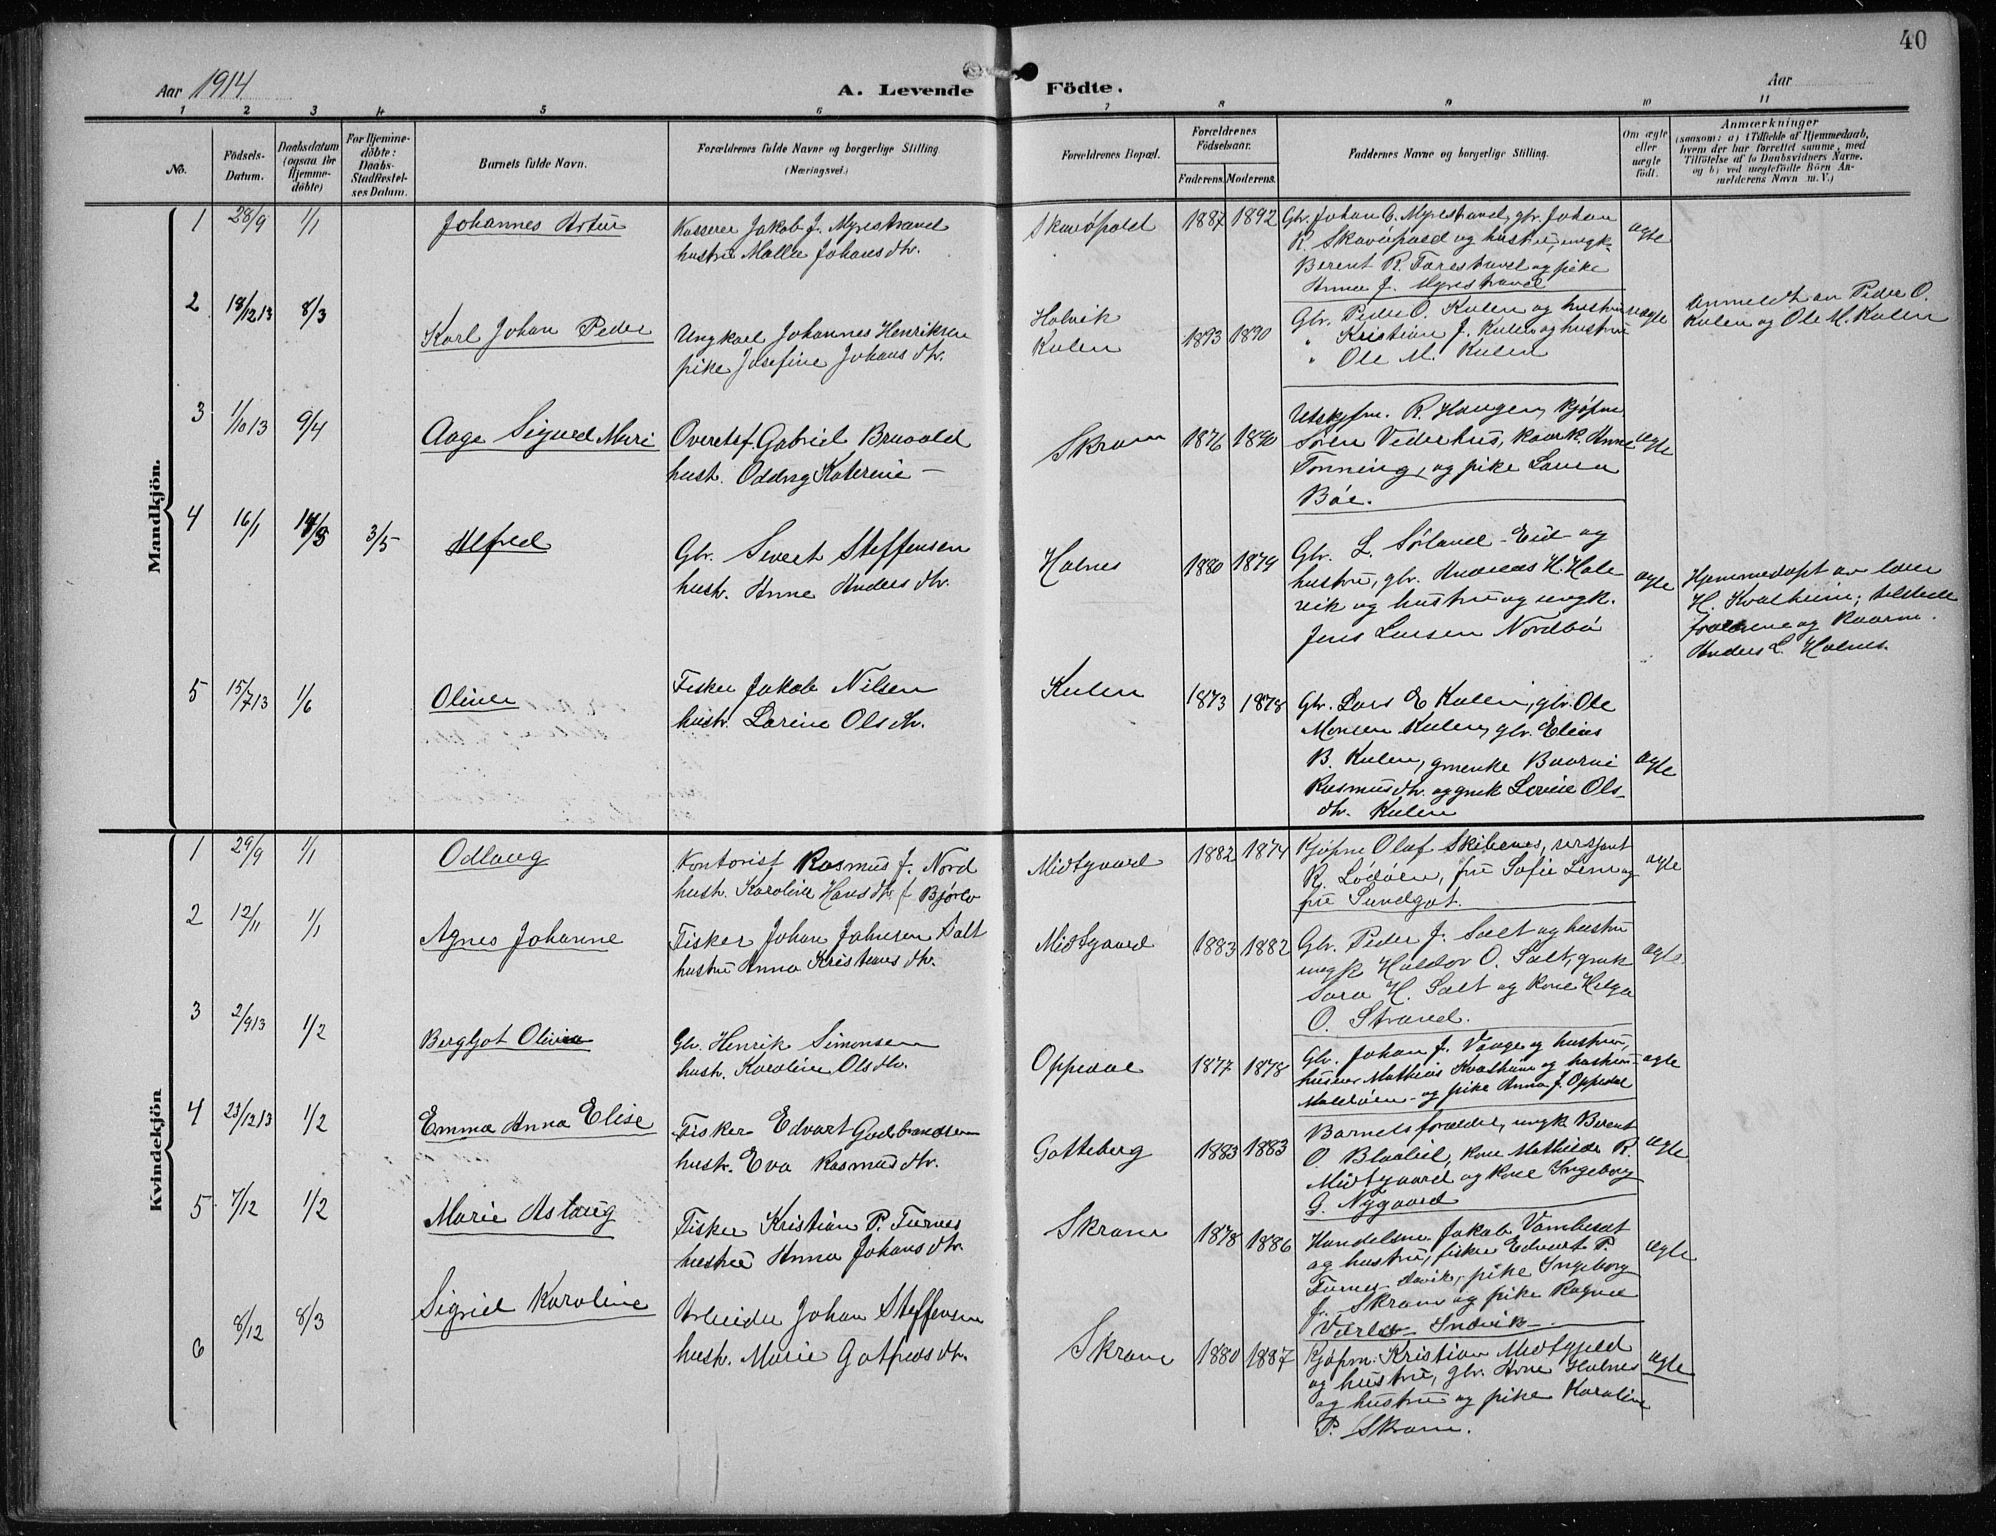 40
Aar 1914
A. Levende Födte.
Aar
1 2 3 4 5 6 7 8 9 10 11
No.
Födsels-Datum.
Daabsdatum (ogsaa for Hjemmedöbte)
For Hjemmedöbte: Daabs-Stadfestelses Datum.
Barnets fulde Navn.
Forældrenes fulde Navne og borgerlige Stilling (Næringsvei.)
Forældrenes Bopæl.
Forældrenes Födselsaar.
Faderens. Moderens.
Faddernes Navne og borgerlige Stilling.
Om ægte eller uægte födt.
Anmærkninger
(saasom: a) i Tilfælde af Hjemmedaab, hvem der har forrettet samme, med Tilföielse af to Daabsvidners Navne. og b) ved uægtefödte Börn Anmelderens Navn m. V.)
Mandkjön.
1 28/9 1/1 Johannes Artur
Kasserer Jakob J. Myrestrand
hustru Malla Johansdtr.
Skavöpold 1887 1892
Gbr. Johan C. Myrestrand, gbr. Johan
R. Skavöpold og hustru, ungk.
Berent R. Farestrand og pike
Anna J. Myrestrand
ægte
2 18/12 13 8/3 Karl Johan Peder
Ungkarl Johannes Henriksen
pike Josefine Johansdtr.
Holvik
Kulen 1893 1890
Gbr. Peder O. Kulen og hustru
" Kristian J. Kulen og hustru
" Ole M. Kulen
uægte
Anmeldt av Peder O.
Kulen og Ole M. Kulen
3 1/10 13 9/4 Aage Sigurd Muri
Overetsf. Gabriel Bruvold
hust. Oddny Katerine —
Skram 1876 1890
Utskjfm. R. Haugen, kjøpm
Søren Vederhus, Anna
Tonning, og pike Laura
Böe.
ægte
4 16/1 14/3 3/5 Alfred
Gbr. Sivert Steffensen
hust. Anne Andersdtr.
Holnes 1880 1879
Gbr. L. Sørland - Eid - og
hustru, gbr. Andreas H. Hole
vik og hustru og ungk.
Jens Larsen Nordbö
ægte
Hjemmedøpt av
H. Kvalheim; tilstede
forældrene og
Anders L. Holnes.
5 15/7 13 1/6 Oliver
Fisker Jakob Nilsen
hust. Lovine Olsdtr.
Kulen 1873 1878
Gbr. Lars E. Kulen, gbr. Ole
Monsen Kulen, gbr. Elias
B. Kulen, gmenke
Rasmusdtr. og gmk Lovise Ols-
dtr. Kulen
ægte
Kvindekjön
1 29/9 1/1 Odlaug
Kontorist Rasmus J. Nord
hust. Karoline Hansdtr. f. Bjørlo
Midtgaard 1882 1874
Kjøpm Olaf Skibenes, sersjant
R. Lödöen, fru Sofie Lem og
fru Sundgot.
ægte
2 12/11 1/1 Agnes Johanne
Fisker Johan Johnsen Salt
hustru Anna Kristiansdtr.
Midtgaard 1883 1882
Gbr. Peder J. Salt og hustru
ungk Haldor O. Salt, gmk
Sara H. Salt og kone Helga
O. Strand.
ægte
3 2/9 13 1/2 Bergljot Olivia
Gbr. Henrik Simonsen
hust. Karoline Olsdtr.
Oppedal 1877 1878
Gbr. Johan J. Vaage og hustru,
husm. Mathias Kvalheim og hustru -
Maldöen - og pike Anna J. Oppedal
ægte
4 23/12 13 1/2 Emma Anna Elise
Fisker Edvart Godbrandsen
hust. Eva Rasmusdtr.
Gotteberg 1883 1883
Barnets forældre, ungk Berent
O. Blaalid, kone Mathilde R.
Midtgaard og kone Ingeborg
G. Nygaard
ægte
5 7/12 1/2 Marie Aslaug
Fisker Kristian P. Furnes
hustru Anna Johansdtr.
Skram 1878 1886
Handelsm. Jakob Vambeset
og hustru, fisker Edvart P.
Furnes - Davik, pike Ingeborg
J. Skram og pike Ragna
Værlo - Indvik -
ægte
6 8/12 8/3 Sigrid Karoline
Arbeider Johan Steffensen
hust. Marie Gotfredsdtr.
Skram 1880 1887
Kjøpm. Kristian Midtgjeld
og hustru, gbr. Arne Holnes
og hustru og pike Karoline
P. Skram.
ægte